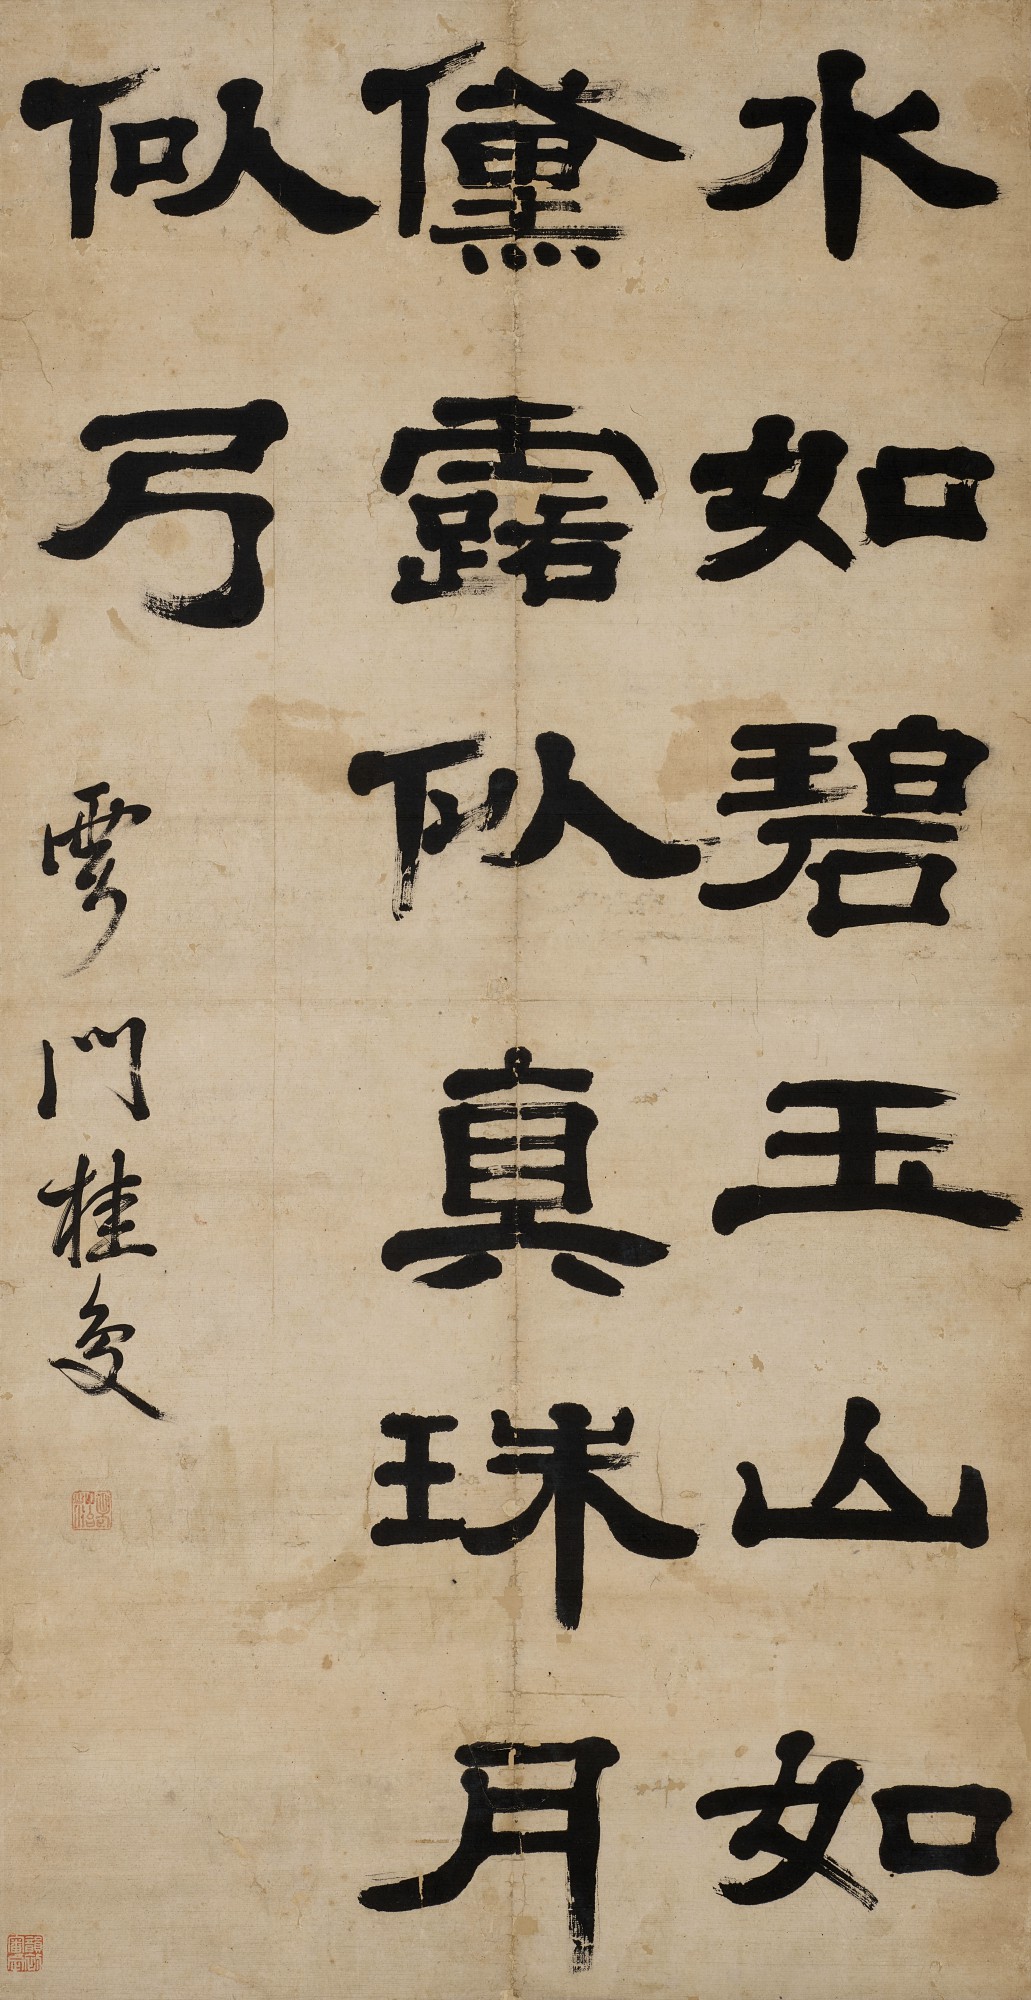 水如碧玉山如
黛露似真珠月
似弓
雩門桂复